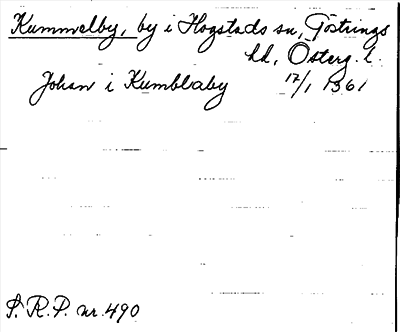 Kummelby, by i Hogstads sn, Göstrings
hd, Österg. l.
Johan i Kumblaby 17/1 1361
S. R. P. nr. 490